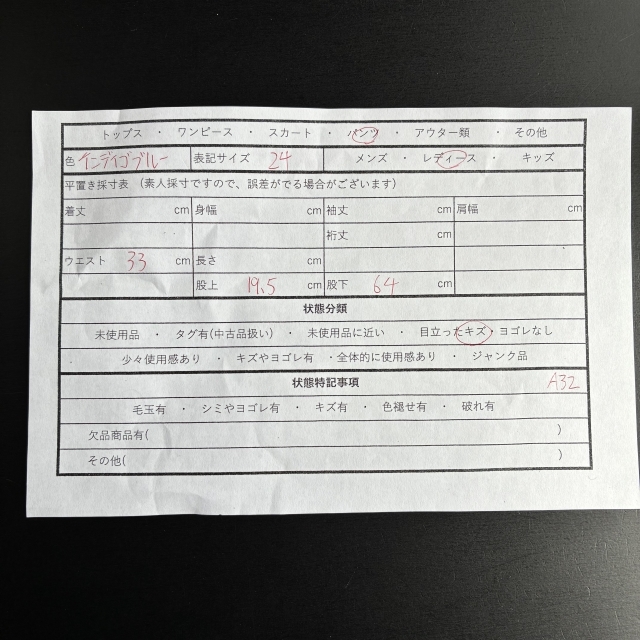 トップス ・ ワンピース ・ スカート ・ パンツ ・ アウター類 ・ その他
色 インディゴブルー 表記サイズ 24 メンズ ・ レディース ・ キッズ
平置き採寸表 (素人採寸ですので、誤差がでる場合がございます)
着丈 cm 身幅 cm 袖丈 cm 肩幅 cm
裄丈 cm
ウエスト 33 cm 長さ cm
股上 19.5 cm 股下 64 cm
状態分類
未使用品 ・ タグ有(中古品扱い) ・ 未使用品に近い ・ 目立ったキズ・ヨゴレなし
少々使用感あり ・ キズやヨゴレ有 ・全体的に使用感あり ・ ジャンク品
状態特記事項 A32
毛玉有 ・ シミやヨゴレ有 ・ キズ有 ・ 色褪せ有 ・ 破れ有
欠品商品有( )
その他( )